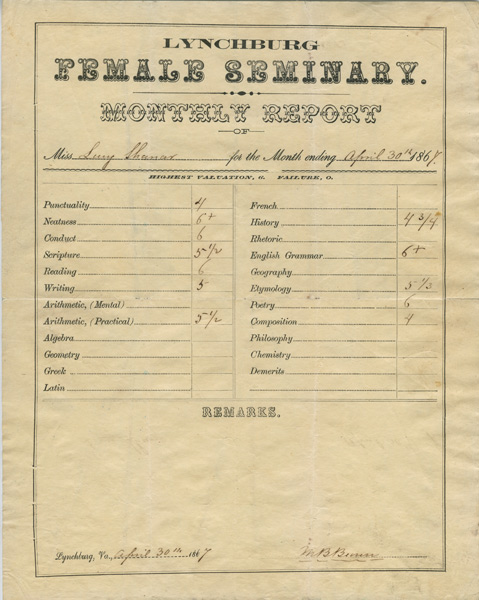 LYNCHBURG
FEMALE SEMINARY.
MONTHLY REPORT
OF
Miss Lucy for the Month ending April 30th 1867.
HIGHEST VALUATION, 6. FAILURE, 0.
Punctuality 4
Neatness 6+
Conduct 6
Scripture 5 1/2
Reading 6
Writing 5
Arithmetic, (Mental)
Arithmetic, (Practical) 5 1/2
Algebra
Geometry
Greek
Latin
French
History 4 3/4
Rhetoric
English Grammar 6+
Geography
Etymology 5 1/3
Poetry 6
Composition 4
Philosophy
Chemistry
Demerits
REMARKS.
Lynchburg, Va., April 30th 1867